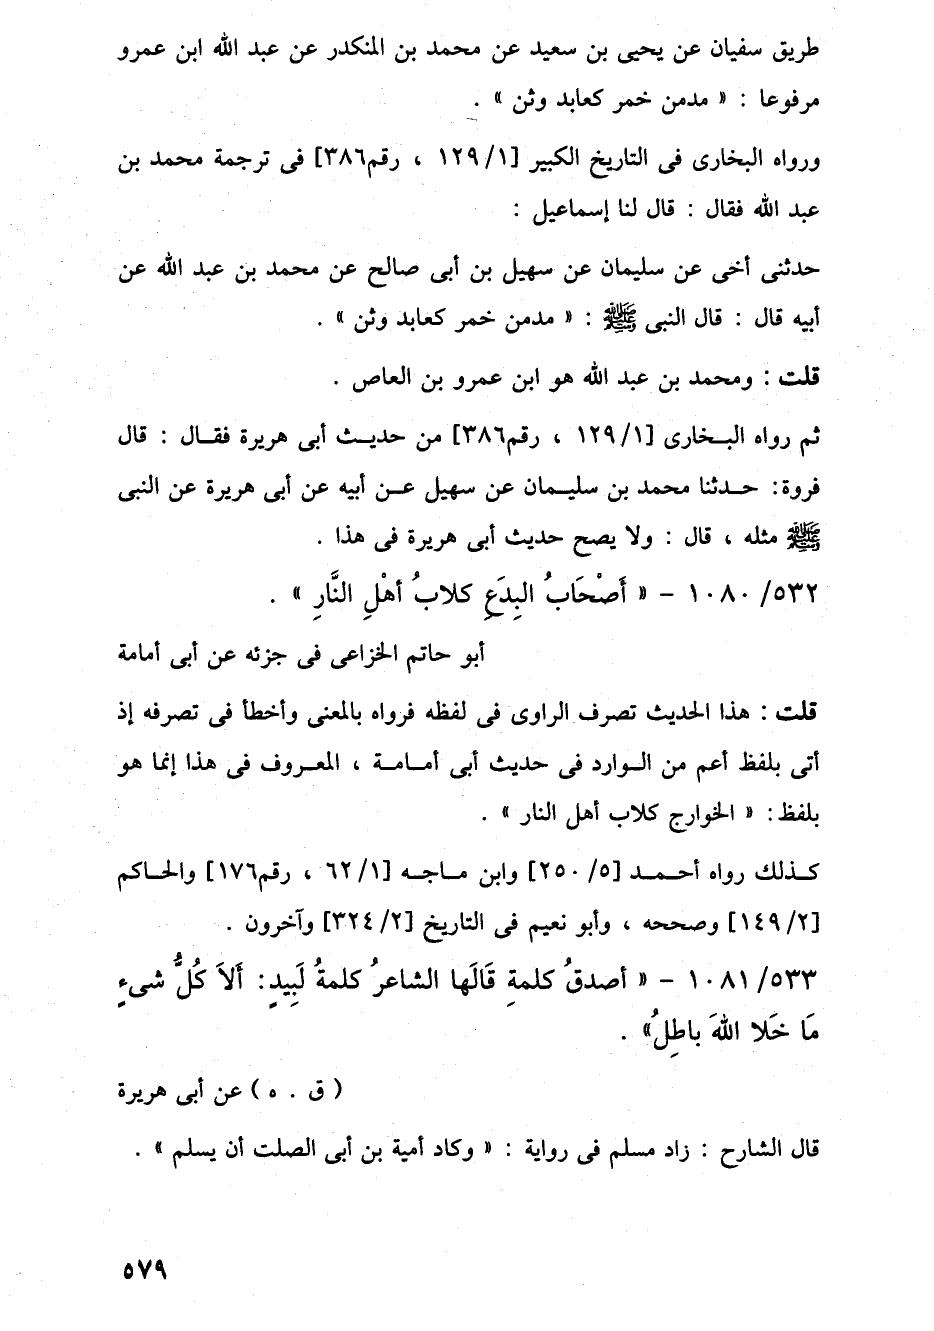 طريق سفيان عن يحيى بن سعيد عن محمد بن المنكدر عن عبد الله ابن عمرو
مرفوعا : « مدمن خمر كعابد وثن » .
ورواه البخارى فى التاريخ الكبير [١/ ١٢٩ ، رقم٣٨٦] فى ترجمة محمد بن
عبد الله فقال : قال لنا إسماعيل :
حدثنى أخى عن سليمان عن سهيل بن أبى صالح عن محمد بن عبد الله عن
أبيه قال : قال النبى ﷺ : « مدمن خمر كعابد وثن » .
قلت : ومحمد بن عبد الله هو ابن عمرو بن العاص .
ثم رواه البـخارى [١/ ١٢٩ ، رقم٣٨٦] من حديـث أبى هريرة فقـال : قال
فروة: حـدثنا محمد بن سليـمان عن سهيل عـن أبيه عن أبى هريرة عن النبى
ﷺ مثله ، قال : ولا يصح حديث أبى هريرة فى هذا .
٥٣٢/ ١٠٨٠ – « أَصْحَابُ البِدَعِ كلابُ أهْلِ النَّارِ » .
أبو حاتم الخزاعى فى جزئه عن أبى أمامة
قلت : هذا الحديث تصرف الراوى فى لفظه فرواه بالمعنى وأخطأ فى تصرفه إذ
أتى بلفظ أعم من الـوارد فى حديث أبى أمـامـة ، المعـروف فى هذا إنما هو
بلفظ: « الخوارج كلاب أهل النار » .
كـذلك رواه أحـمـد [٥/ ٢٥٠] وابن مـاجـه [١/ ٦٢ ، رقم١٧٦] والحـاكم
[٢/ ١٤٩] وصححه ، وأبو نعيم فى التاريخ [٢/ ٣٢٤] وآخرون .
٥٣٣/ ١٠٨١ – « أصدقُ كلمةِ قَالَها الشاعرُ كلمةُ لَبِيدٍ: أَلاَ كُلُّ شىءٍ
مَا خَلا اللهَ باطِلُ» .
( ق . ه ) عن أبى هريرة
قال الشارح : زاد مسلم فى رواية : « وكاد أمية بن أبى الصلت أن يسلم » .
٥٧٩